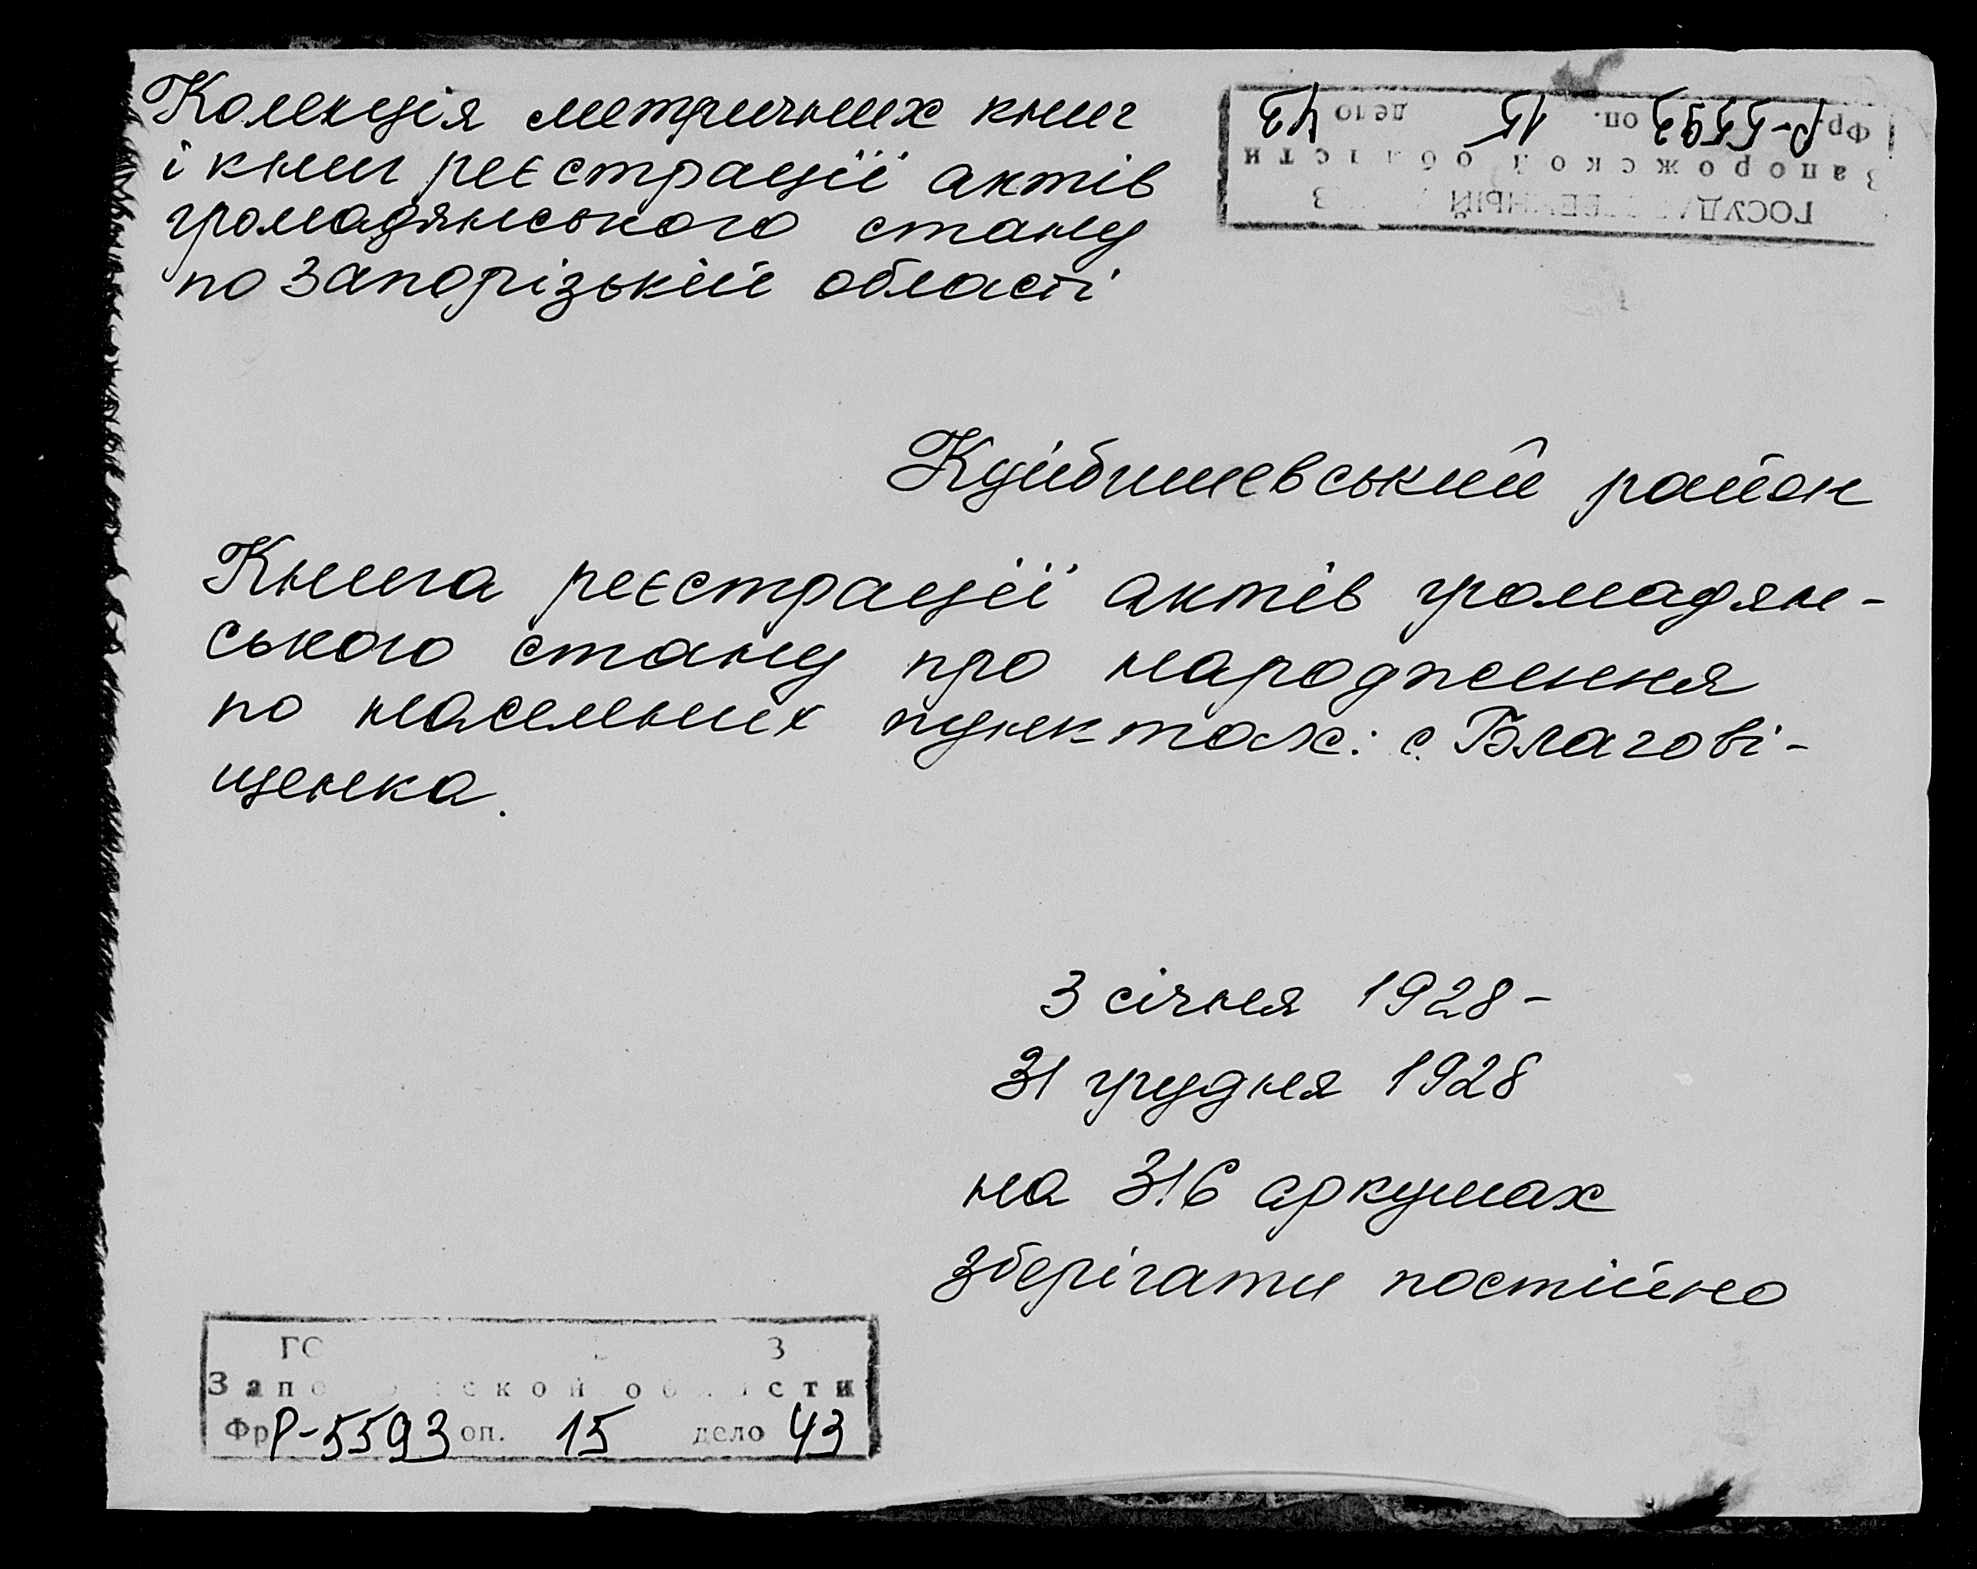 Колекція метричних книг
і книг реєстрації актів
громадянського стану
по Запорізькій області
Фр. Р-5593 оп. 15 дело 43
Запорожской области
Куйбишевський район
Книга реєстрації актів громадян-
ського стану про народження
по населених пунктах: с. Благові-
щенка.
3 січня 1928 -
31 грудня 1928
на 316 аркушах
зберігати постійно
Запо ской области
Фр Р-5593 оп. 15 дело 43